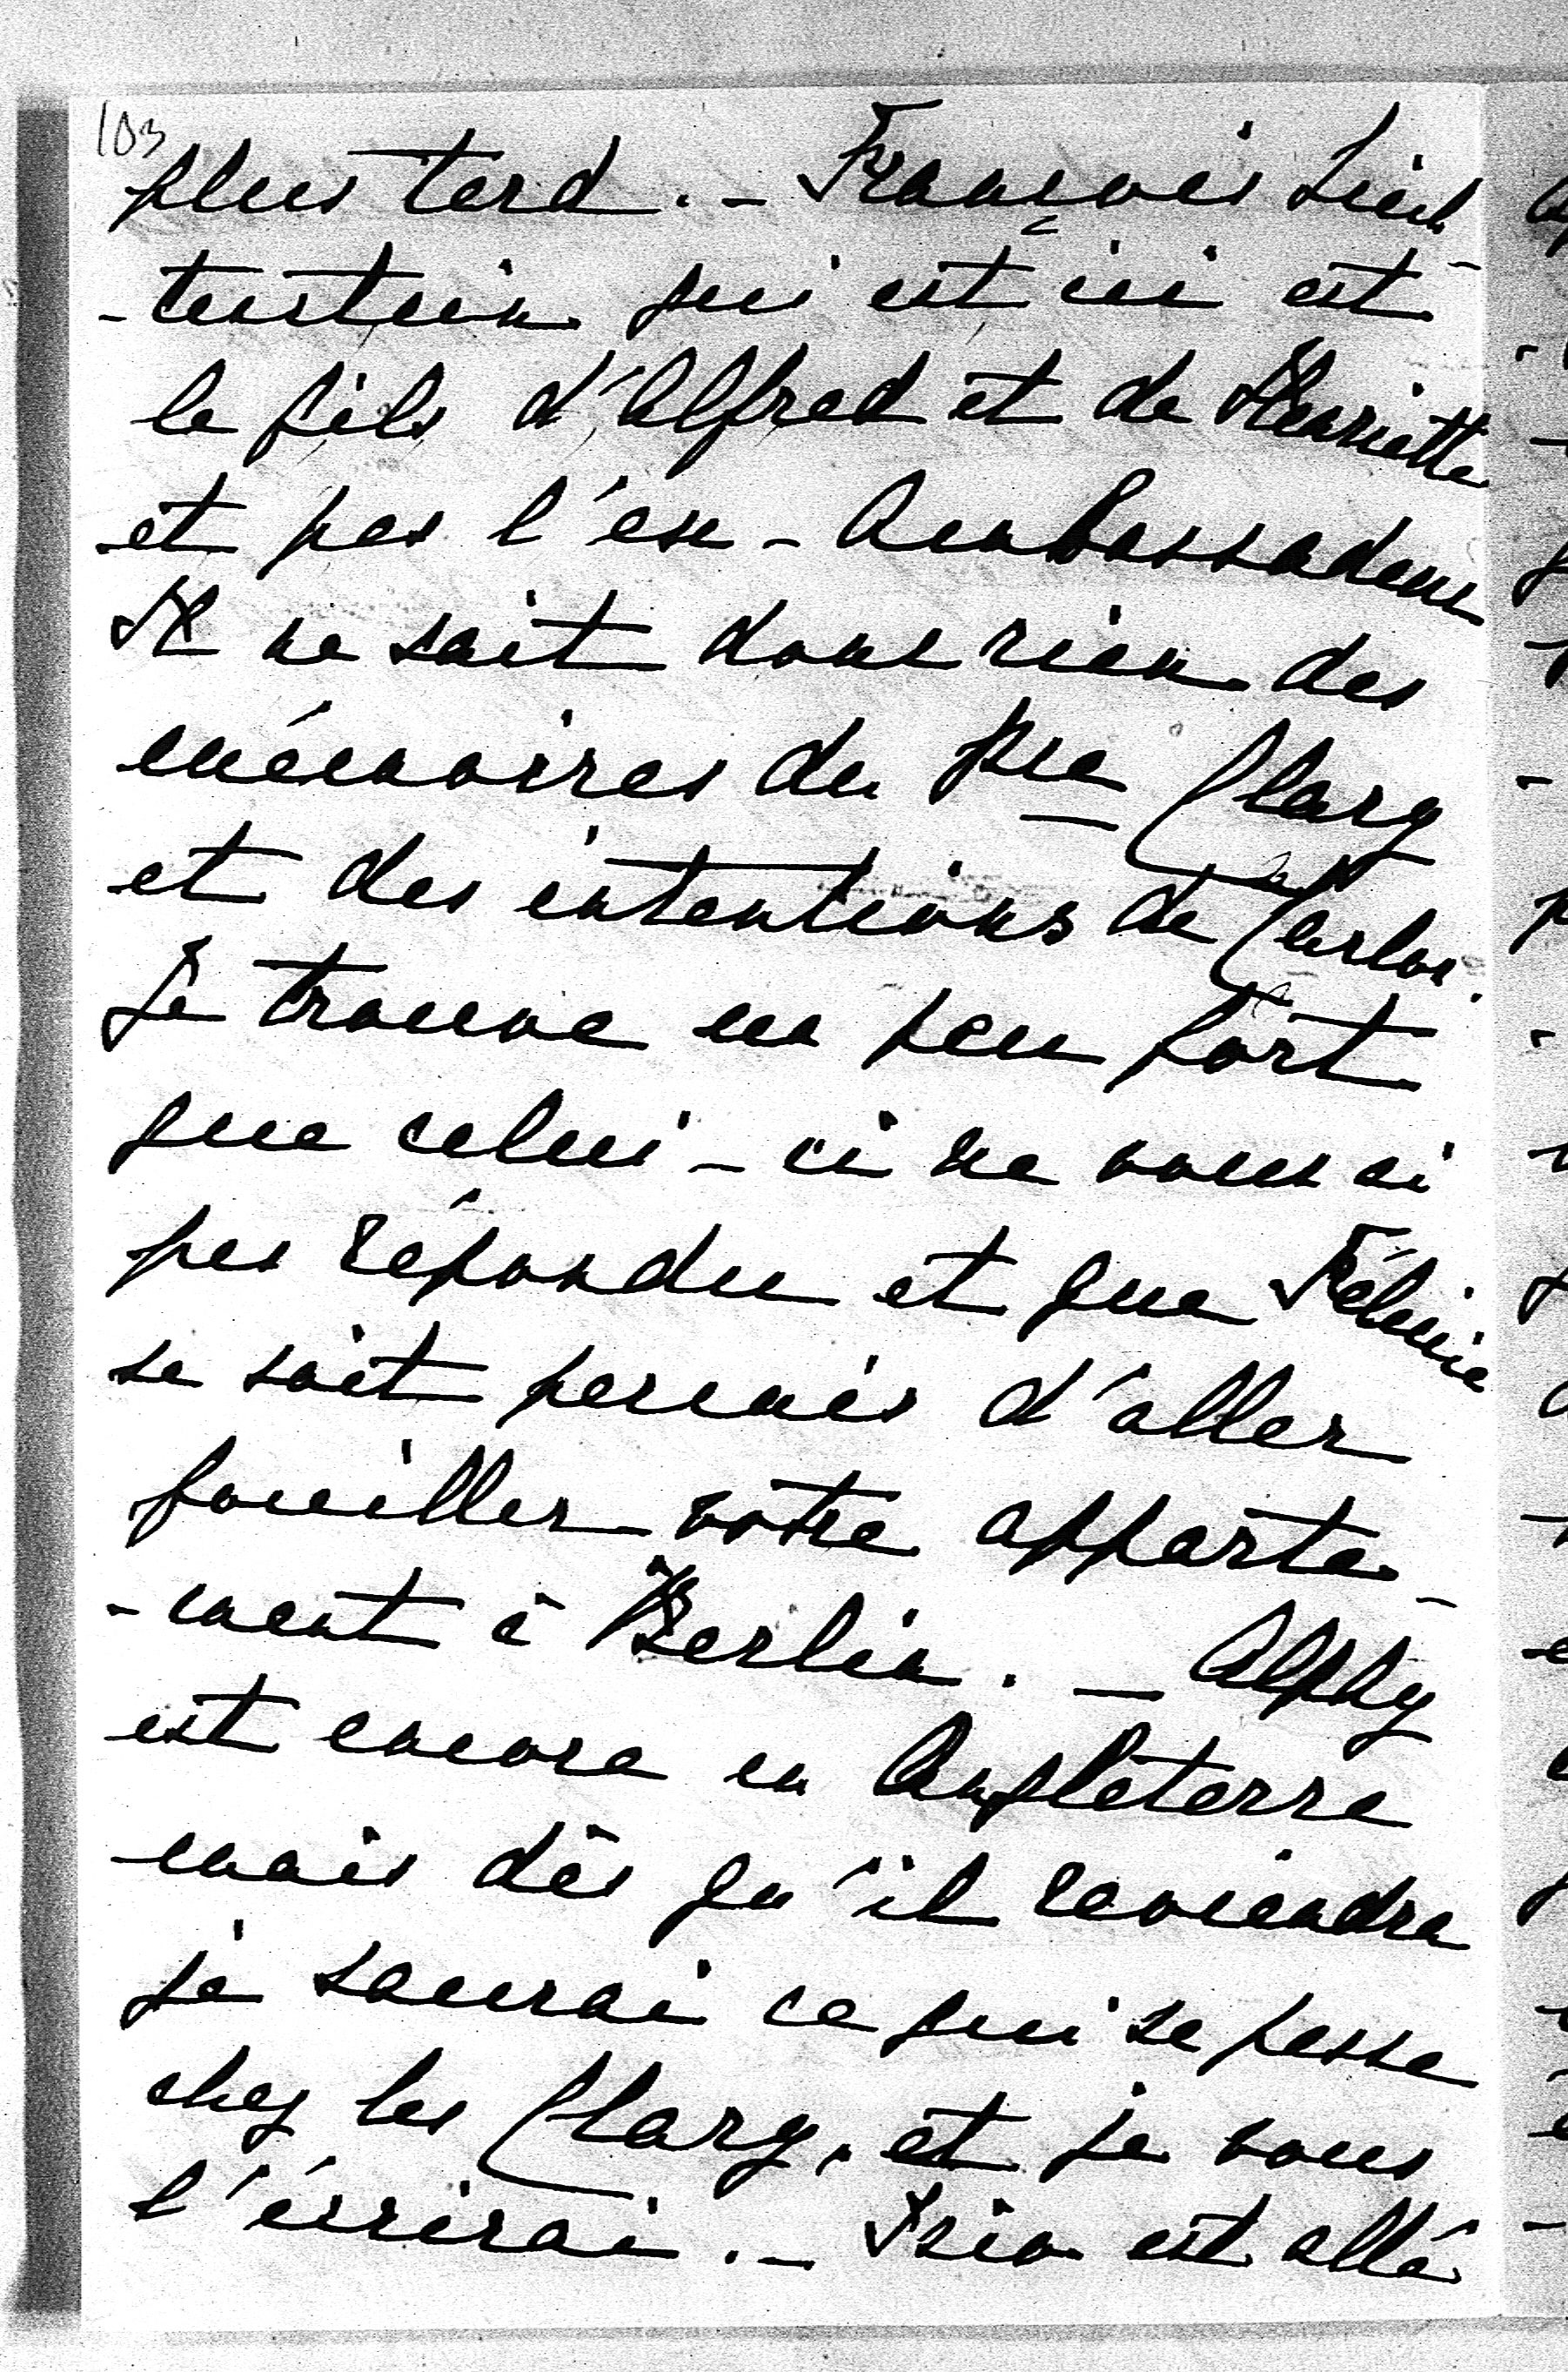 103
plus tard. – François Liech
-tenstein qui est ici est
le fils d'Alfred et de Henriette
et pas l'ex-Ambassadeur
Il ne sait donc rien des
mémoires du Pce Clary
et des intentions de Carlos.
Je trouve un peu fort
que celui-ci ne vous ai
pas répondu et que Félicie
se soit permis d'aller
fouiller votre apparte-
-ment à Berlin. – Alphy
est encore en Angleterre
mais dès qu'il reviendra
je saurai ce qui se passe
chez les Clary, et je vous
l'écrirai. – est allé